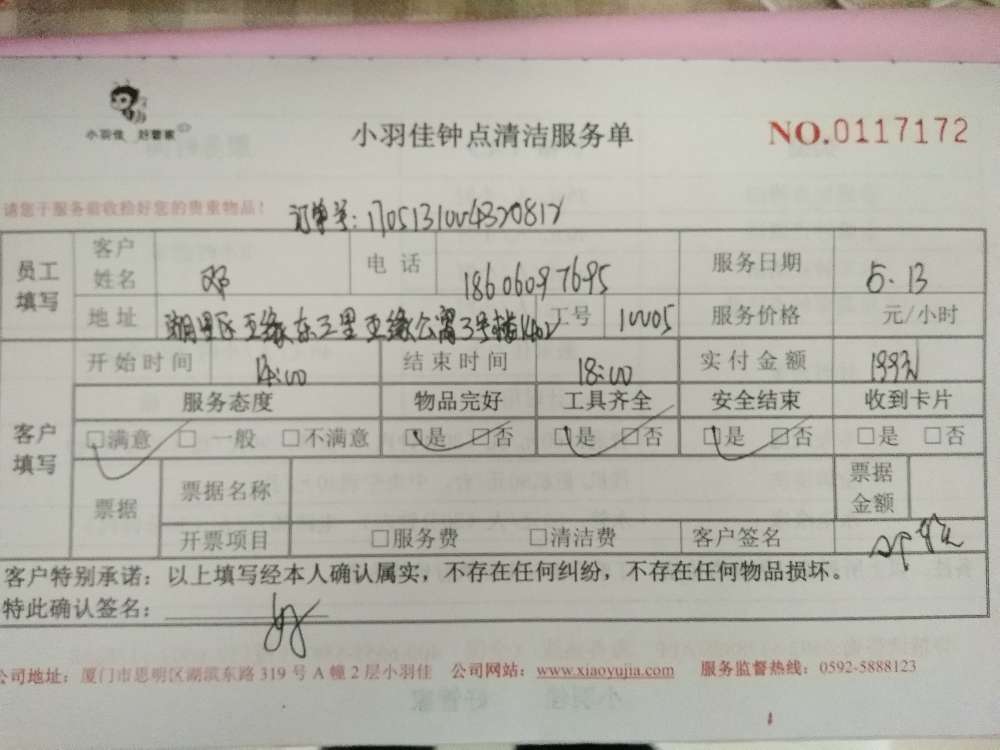 小羽佳 好管家
小羽佳钟点清洁服务单
NO.0117172
请您于服务前收捡好您的贵重物品！
订单号：1705131004320812
员工填写 客户姓名 邓 电话 18606097695 服务日期 5.13
地址 湖里区亚缘东三里亚缘公寓3号楼1402 工号 10005 服务价格 元/小时
客户填写 开始时间 14:00 结束时间 18:00 实付金额 199元
服务态度 物品完好 工具齐全 安全结束 收到卡片
□满意 □一般 □不满意 □是 □否 □是 □否 □是 □否 □是 □否
票据 票据名称 票据金额
开票项目 □服务费 □清洁费 客户签名
客户特别承诺：以上填写经本人确认属实，不存在任何纠纷，不存在任何物品损坏。
特此确认签名：
公司地址：厦门市思明区湖滨东路 319 号 A 幢 2 层小羽佳 公司网站：www.xiaoyujia.com 服务监督热线：0592-5888123